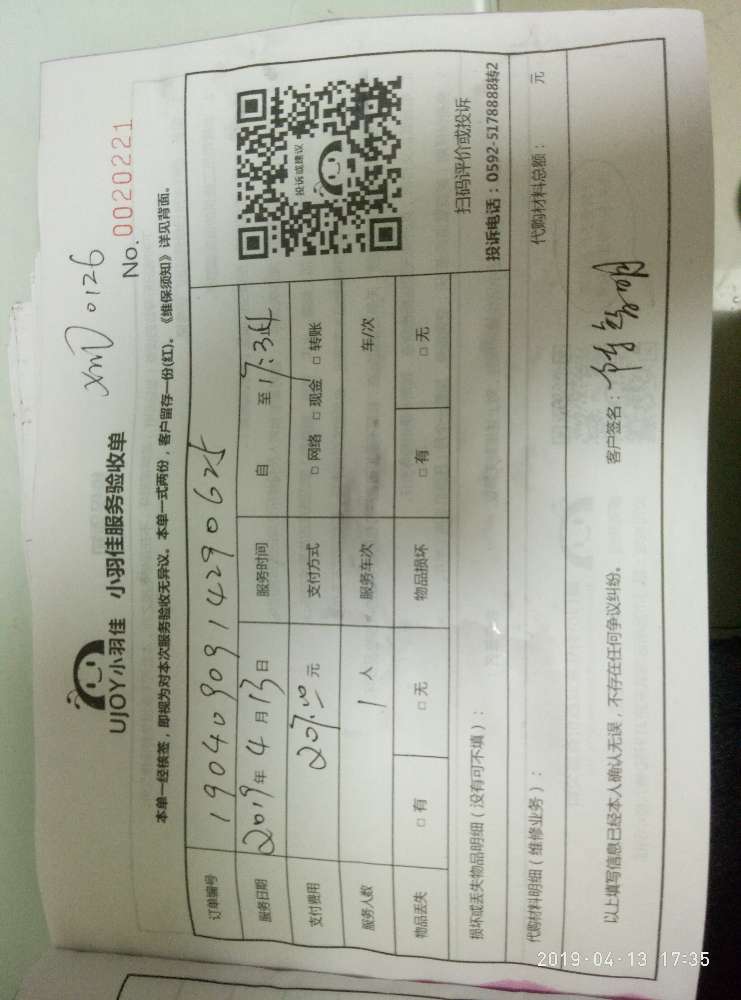 UJOY小羽佳 小羽佳服务验收单
XMD 0126
No. 0020221
本单一经核签，即视为对本次服务验收无异议。本单一式两份，客户留存一份(红)。《维保须知》详见背面。
订单编号 1904090914290625
服务日期 2019年 4月 13日 服务时间 自 至 17:34
支付费用 元 支付方式 □ 网络 □ 现金 □ 转账
服务人数 1 人 服务车次 车/次
物品丢失 □ 有 □ 无 物品损坏 □ 有 □ 无
投诉或建议
扫码评价或投诉
投诉电话：0592-5178888转2
损坏或丢失物品明细（没有可不填）：
代购材料明细（维修业务）： 代购材料总额： 元
以上填写信息已经本人确认无误，不存在任何争议纠纷。 客户签名：
2019-04-13 17:35